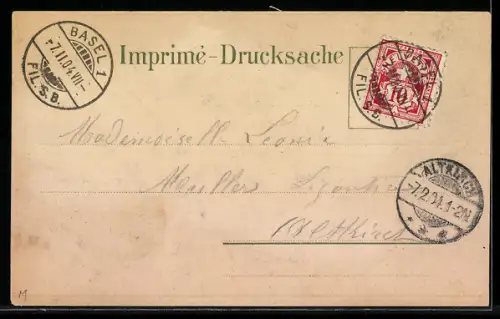 BASEL 1
-7.II.04.VII-
FIL. S. B.
Imprimé-Drucksache
10
FIL. S. B.
Mademoiselle Léonie
Muller
Altkirch
ALTKIRCH
-7.2.04.1-2N.
M